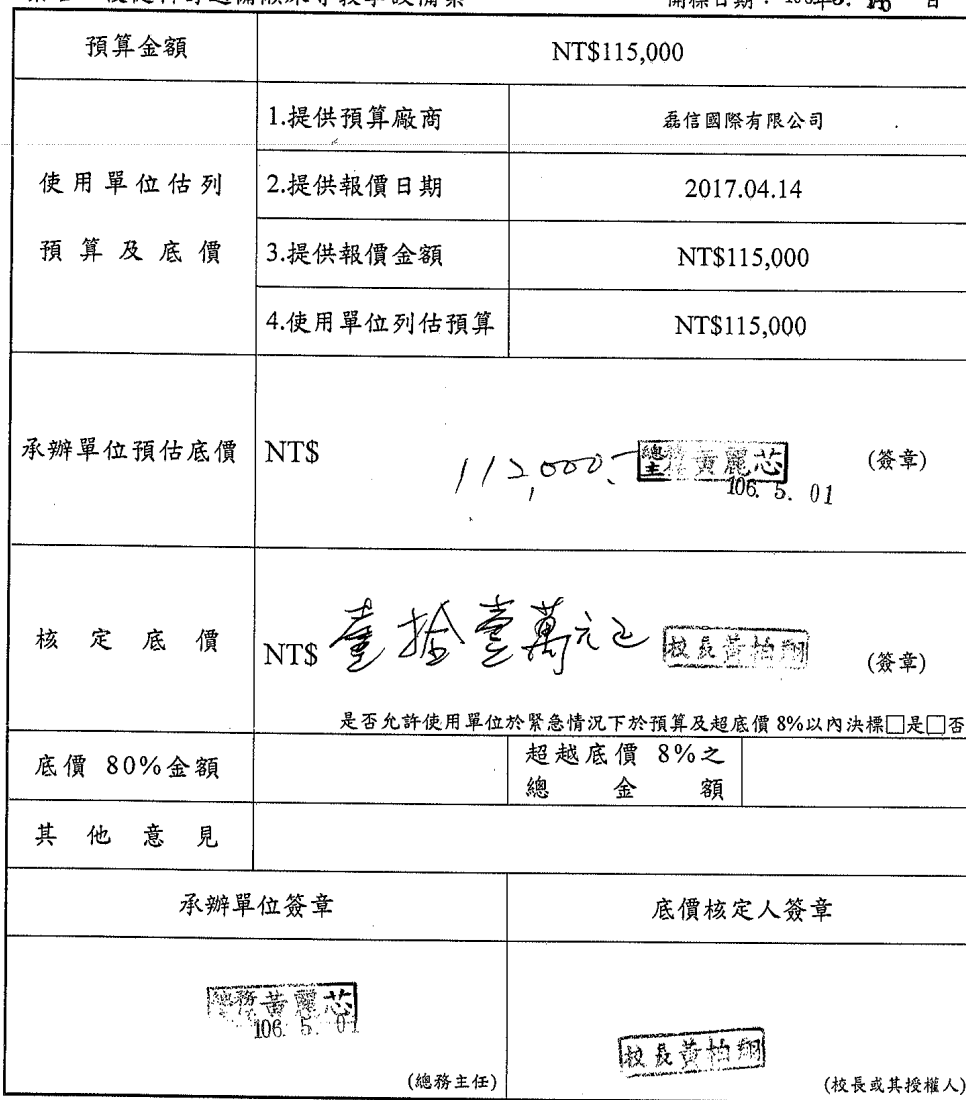 開標日期：106年5. 日
預算金額 NT$115,000
使用單位估列
預算及底價
1.提供預算廠商 磊信國際有限公司
2.提供報價日期 2017.04.14
3.提供報價金額 NT$115,000
4.使用單位列估預算 NT$115,000
承辦單位預估底價 NT$ 112,000.- 總務主 黃麗芯 (簽章)
106. 5. 01
核定底價 NT$ 壹拾壹萬元正 校長黃柏翔 (簽章)
是否允許使用單位於緊急情況下於預算及超底價 8%以內決標□是□否
底價 80%金額 超越底價 8%之
總金額
其他意見
承辦單位簽章 底價核定人簽章
總務黃麗芯
106. 5. 01
校長黃柏翔
(總務主任) (校長或其授權人)